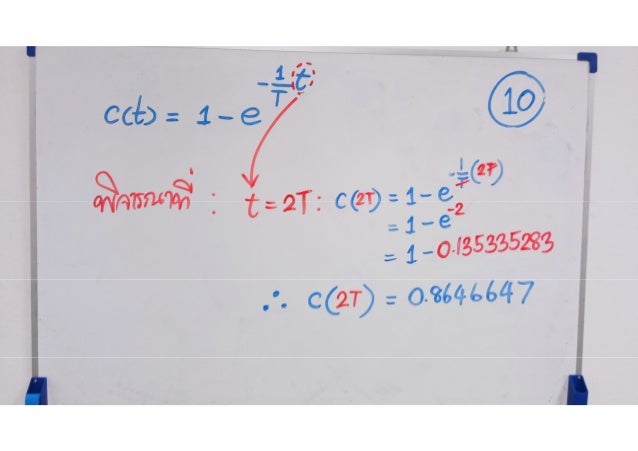 10
c(t) = 1 - e^{-\frac{1}{T}t}
พิจารณาที่ : t = 2T : c(2T) = 1 - e^{-\frac{1}{T}(2T)}
= 1 - e^{-2}
= 1 - 0.135335283
∴ c(2T) = 0.8646647